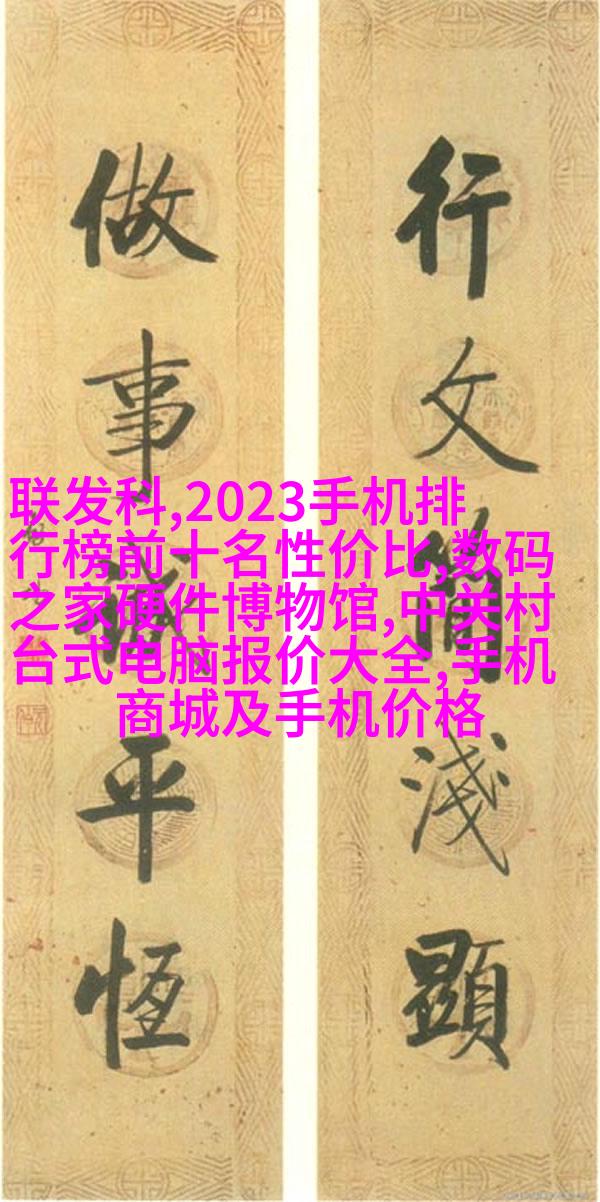 行文簡淺顯
做事誠平恆
联发科,2023手机排
行榜前十名性价比,数码
之家硬件博物馆,中关村
台式电脑报价大全,手机
商城及手机价格